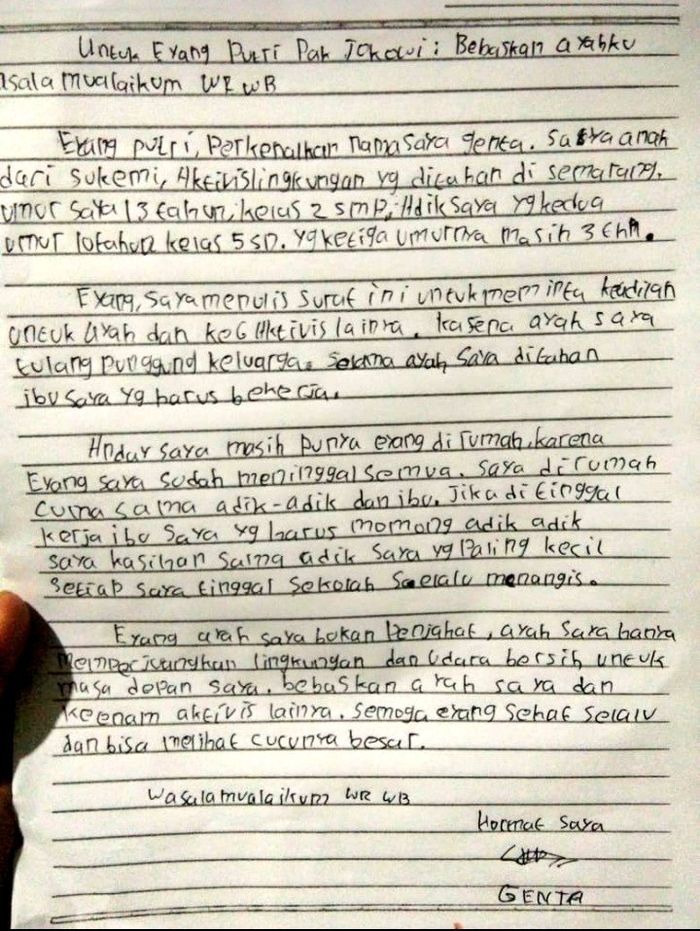 Untuk Eyang Putri Pak Jokowi: Bebaskan ayahku
asalamualaikum WR WB
Eyang putri, Perkenalkan nama saya genta. Saya anak
dari sukemi, Aktivis lingkungan yg ditahan di semarang.
umur saya 13 tahun, kelas 2 smp, Adik saya yg kedua
umur 10 tahun kelas 5 SD. yg ketiga umurnya masih 3 thn.
Eyang, saya menulis surat ini untuk meminta keadilan
untuk ayah dan ke6 Aktivis lainya. karena ayah saya
tulang punggung keluarga. selama ayah saya ditahan
ibu saya yg harus bekerja.
Anday saya masih punya eyang di rumah, karena
Eyang saya sudah meninggal semua. saya di rumah
cuma sama adik-adik dan ibu. Jika di tinggal
kerja ibu saya yg harus momong adik adik
saya kasihan sama adik saya yg Paling kecil
setiap saya tinggal sekolah selalu menangis.
Eyang ayah saya bukan Penjahat, ayah saya hanya
memperjuangkan lingkungan dan udara bersih untuk
masa depan saya. bebaskan ayah saya dan
keenam aktivis lainya. semoga eyang sehat selalu
dan bisa melihat cucunya besar.
Wasalamualaikum WR WB
Hormat saya
GENTA